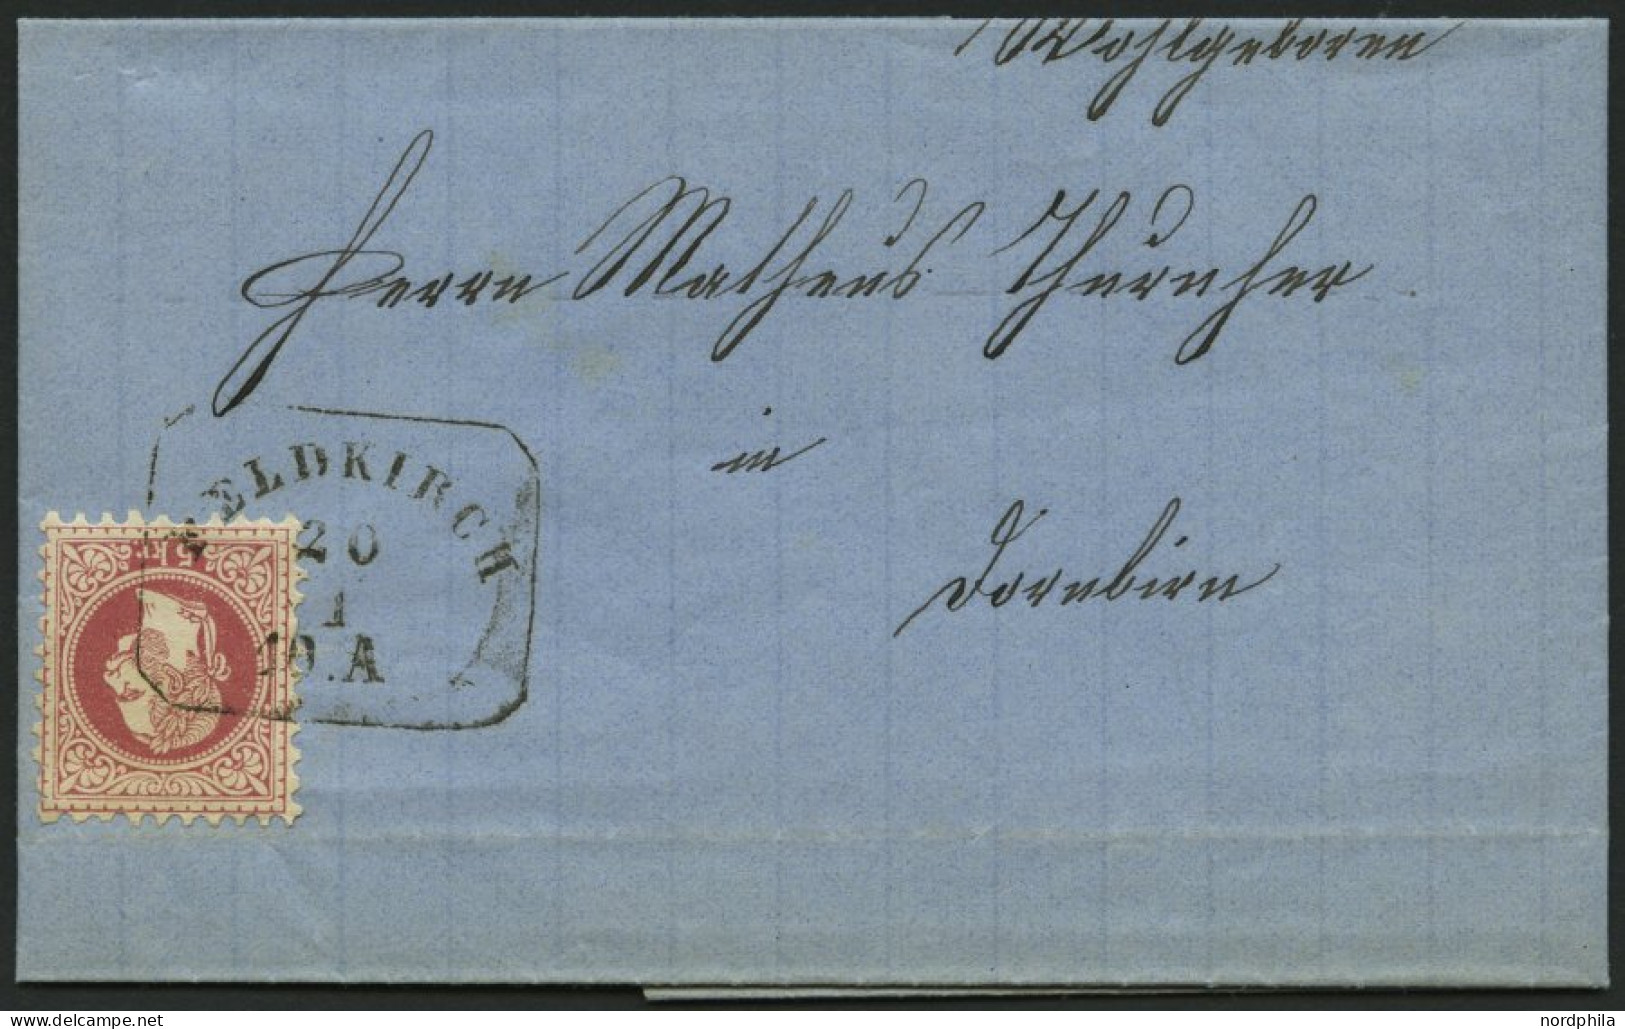 Wohlgeboren
Herrn Matheus Thurnher
in
Dornbirn
FELDKIRCH
20
1
10.A
5 kr
nordphila